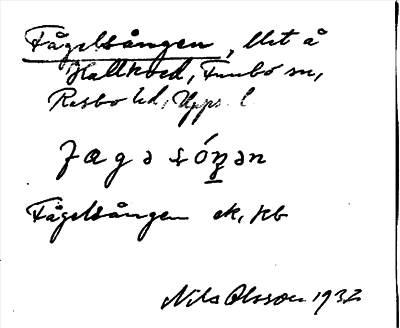 Fågelsången, Ust å
Hallkved, Funbo sn,
Rasbo hd, Upps. l
fagə sóŋən
Fågelsången ek, kb
Nils Olsson 1932